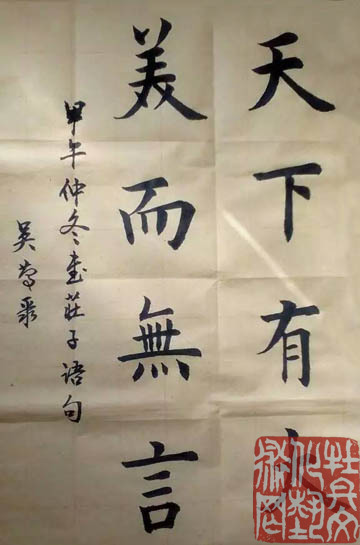 天下有大
美而無言
甲午仲冬書莊子語句
吳